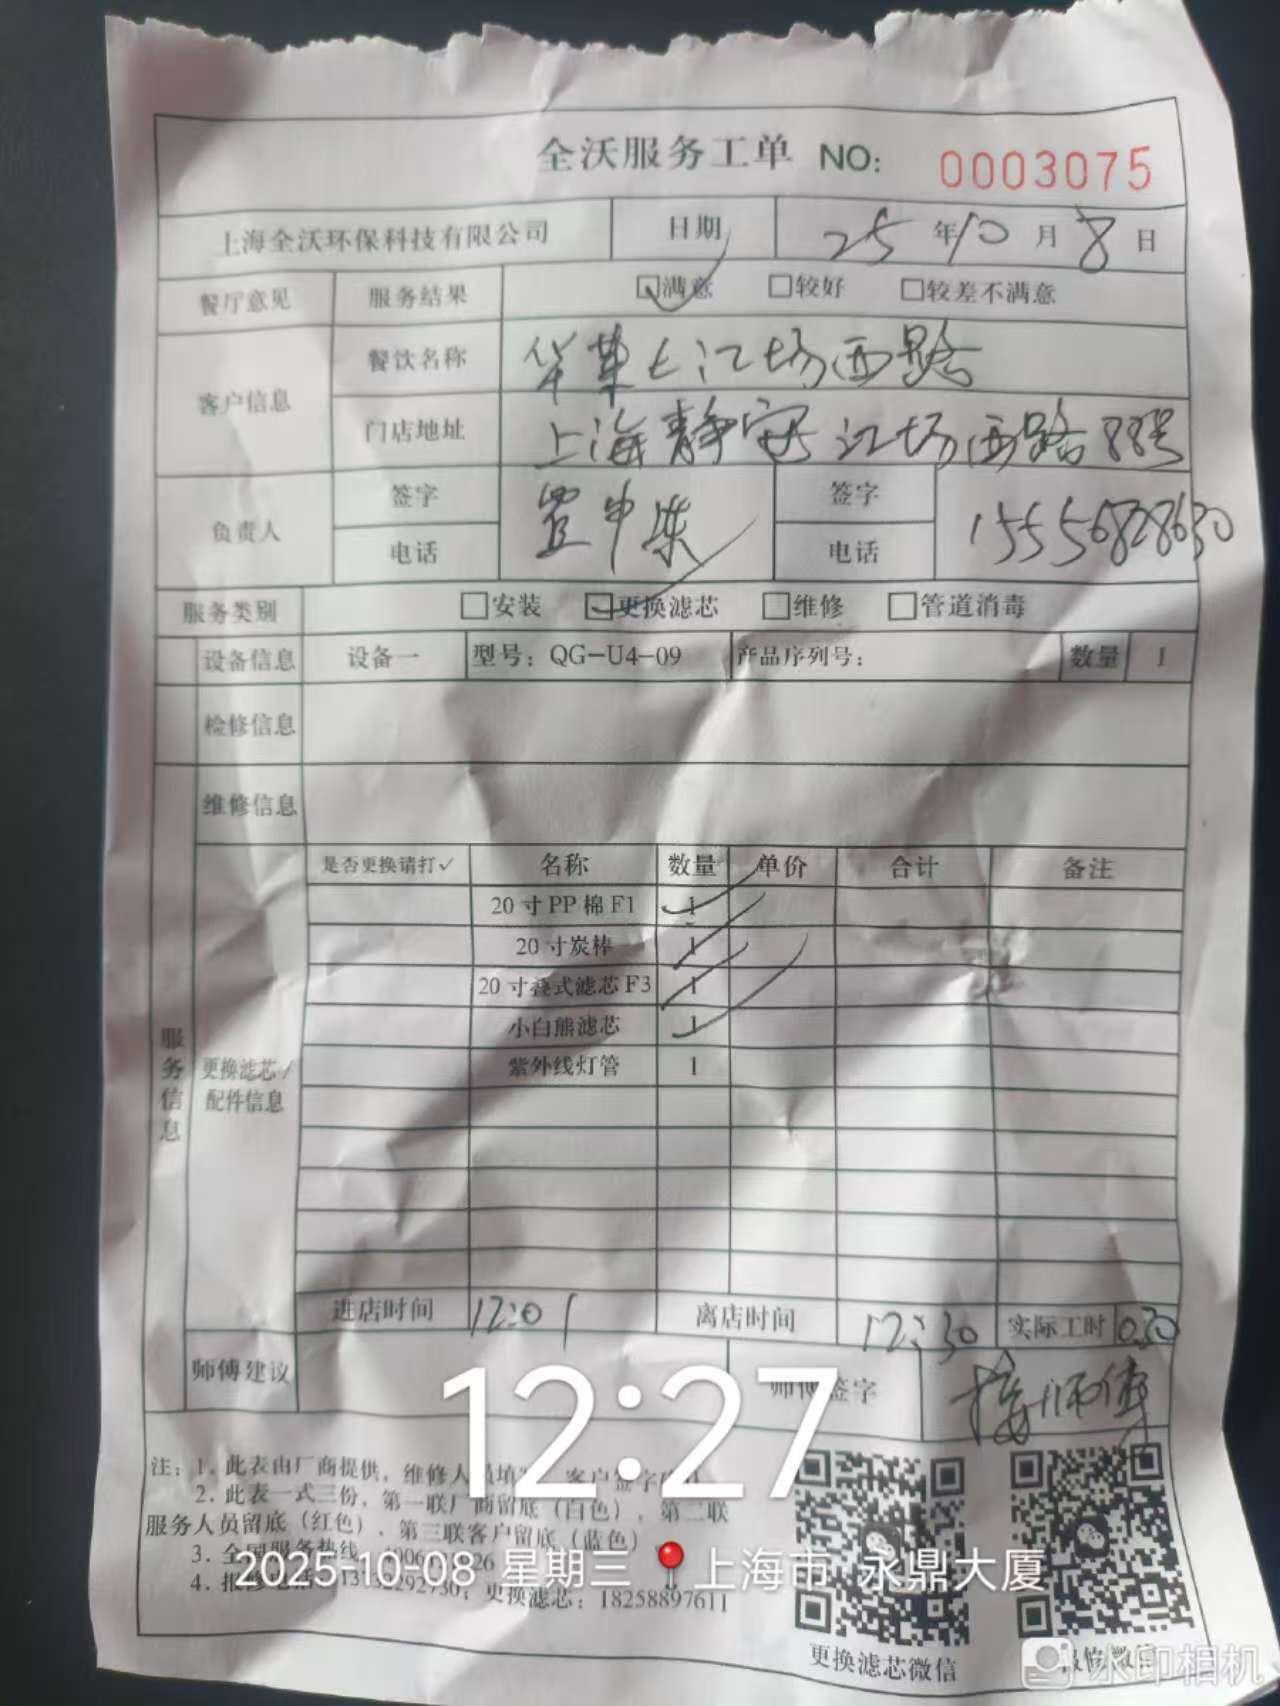 全沃服务工单 NO: 0003075
上海全沃环保科技有限公司 日期 25 年 10 月 8 日
餐厅意见 服务结果 ☑满意 □较好 □较差不满意
客户信息 餐饮名称 华莱士江场西路
门店地址 上海静安江场西路88号
负责人 签字 签字
电话 电话 15556828630
服务类别 □安装 ☑更换滤芯 □维修 □管道消毒
设备信息 设备一 型号：QG-U4-09 产品序列号： 数量 1
检修信息
维修信息
服务信息
更换滤芯/配件信息
是否更换请打✓ 名称 数量 单价 合计 备注
20寸PP棉F1 1 ✓
20寸炭棒 1 ✓
20寸叠式滤芯F3 1 ✓
小白熊滤芯 1 ✓
紫外线灯管 1
进店时间 12:01 离店时间 12:30 实际工时 0.30
师傅建议 师傅签字 师傅
12:27
注：1. 此表由厂商提供，维修人员填写，客户签字
2. 此表一式三份，第一联厂商留底（白色），第二联
服务人员留底（红色），第三联客户留底（蓝色）
3. 全国服务热线
4. 更换滤芯：18258897611
2025-10-08 星期三 上海市 永鼎大厦
更换滤芯微信 报修微信
水印相机